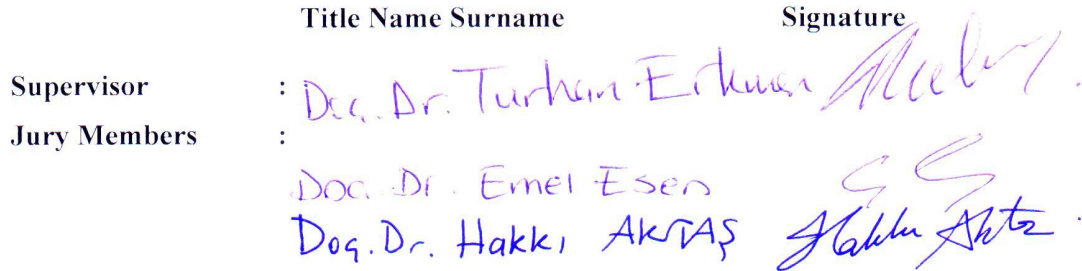 Title Name Surname Signature
Supervisor : Doç. Dr. Turhan Erkmen
Jury Members :
Doç. Dr. Emel Esen
Doç. Dr. Hakkı AKTAŞ Hakkı Aktaş